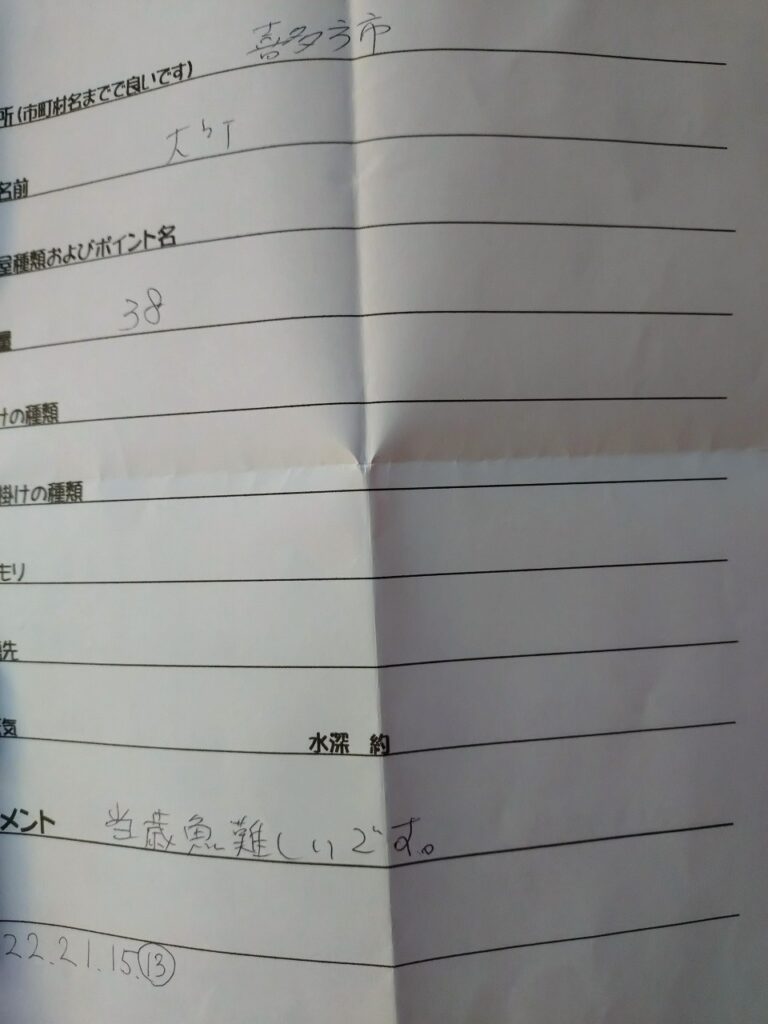 喜多方市
所(市町村名までで良いです)
大町
名前
屋種類およびポイント名
38
量
けの種類
掛けの種類
モリ
穂先
天気 水深 約
メント 当歳魚難しいです。
22.21.15.⑬